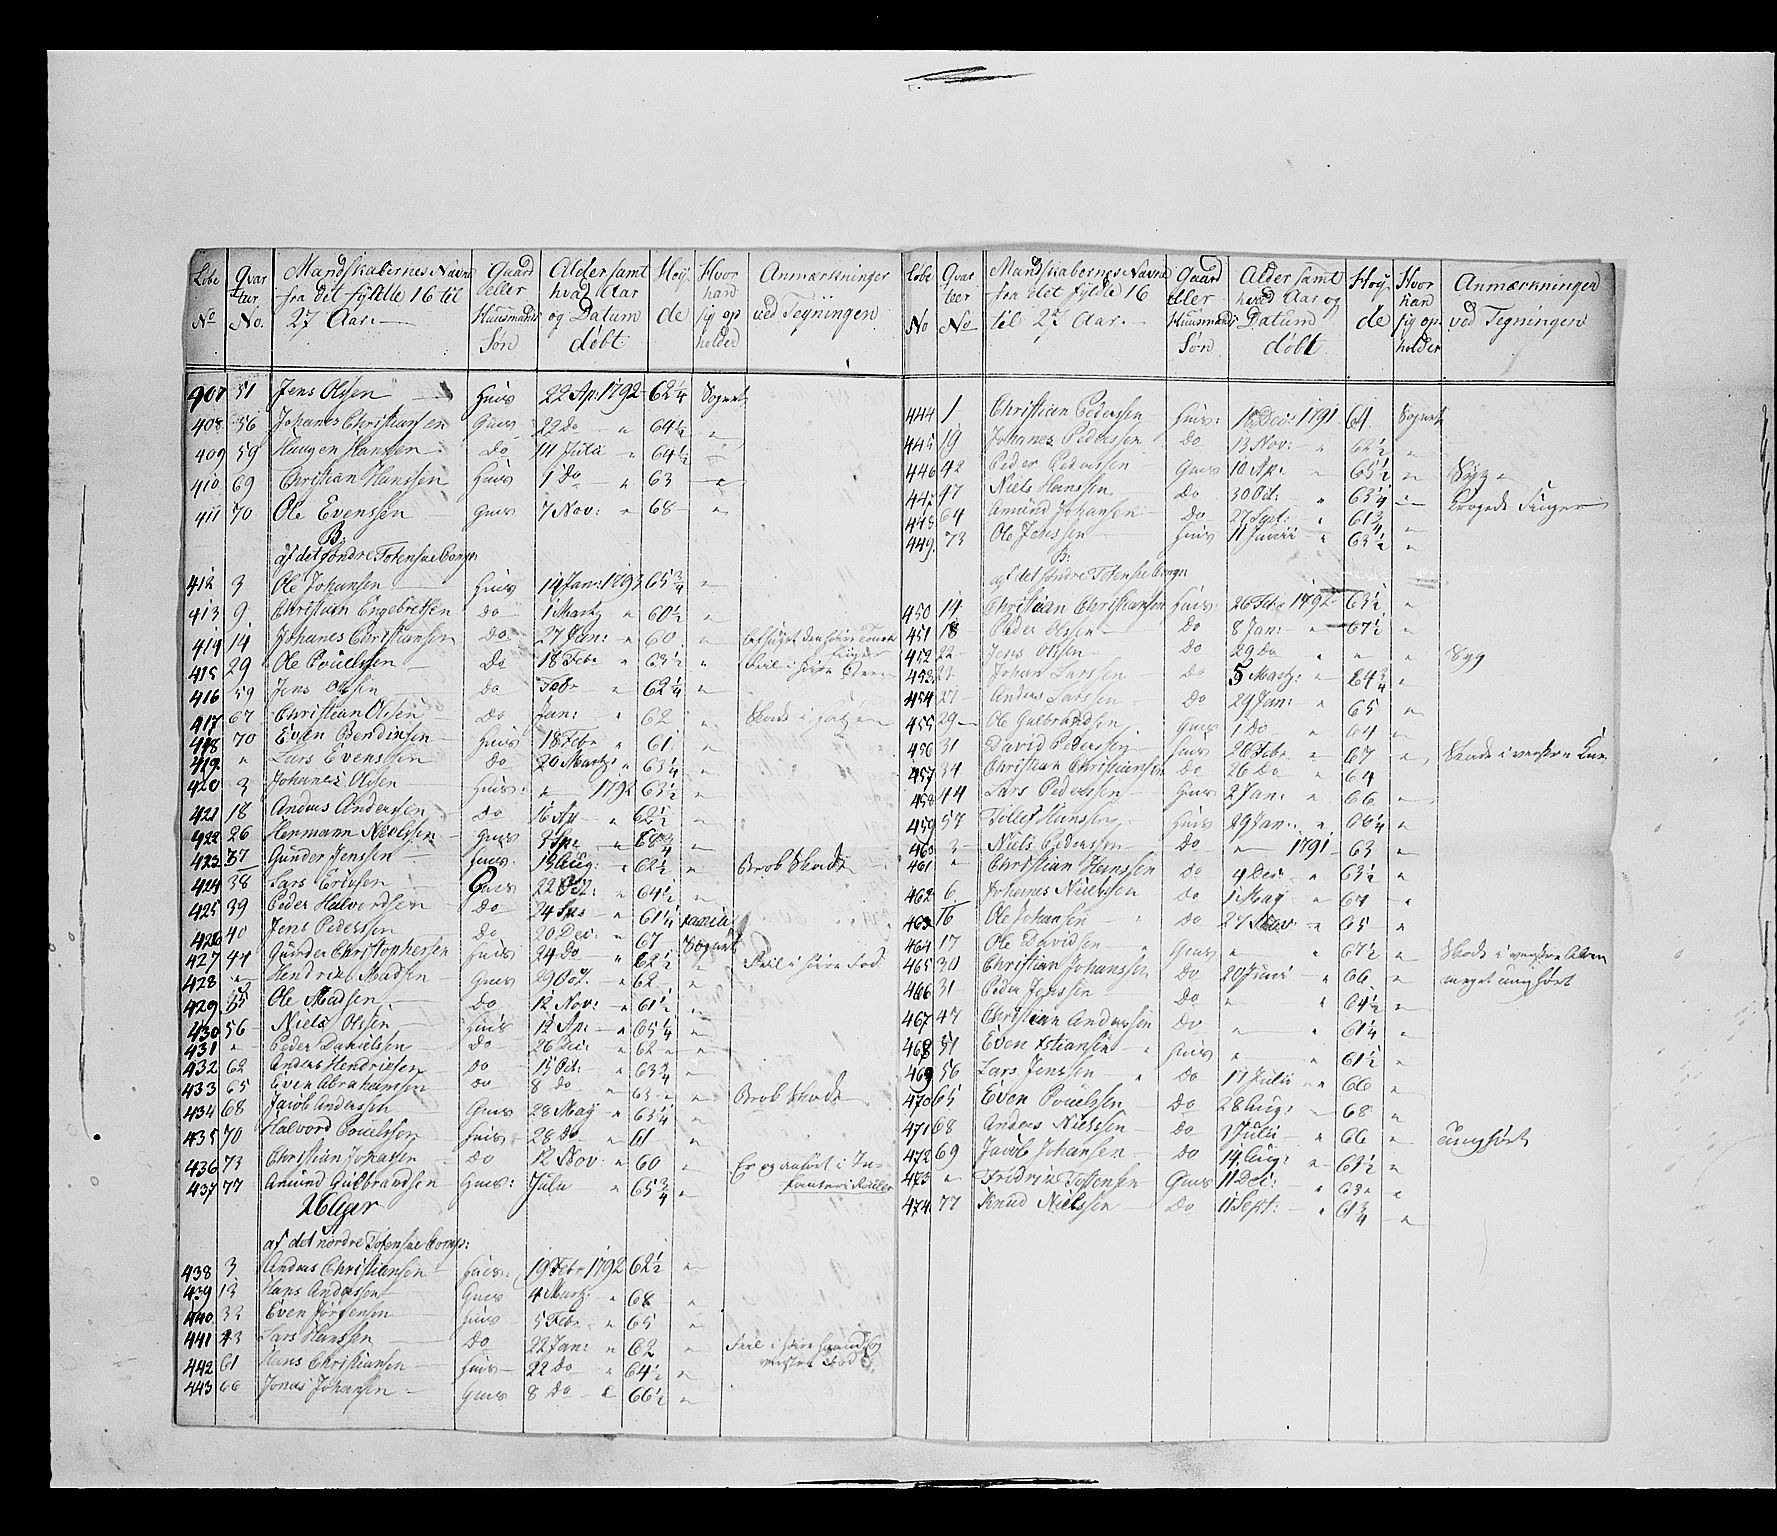 Løbe No | Qvarteer No. | Mandskabernes Navne fra det fyldte 16 til 27 Aar. | Gaard eller Huusmands Søn | Alder samt hvad Aar og Datum døbt | Høyde | Hvor hand sig opholder | Anmærkninger ved Tegningen
407 51 Jens Olsen Huus 22 Ap: 1792 62 1/4 Sognet
408 56 Johanes Christiansen Gaas 22 Do " 64 1/2 "
409 59 Haagen Hansen Do 14 Julii " 64 1/2 "
410 69 Christian Hanssen Huus 1 Do " 63 "
411 70 Ole Evenssen Gaas 7 Nov: " 68 "
B.
af det søndre Totenske Comp:
412 3 Ole Johansen Huus 14 Jan: 1793 65 3/4 "
413 9 Christian Engebretsen Do 1 Martz " 60 1/2 "
414 14 Johanes Christiansen Do 27 Jan: " 60 "
415 29 Ole Pouelssen Do 18 Febr " 63 1/2 " Feil i høire
416 59 Jens Olssen Do Febr " 62 1/4 "
417 67 Christian Olsen Do Jan: " 62 " Skade i
418 70 Even Bendixsen Huus 18 Febr " 61 "
419 " Lars Evenssen Do 20 Martz " 63 1/4 "
420 3 Johanes Olsen Huus: " 1792 63 1/2 "
421 18 Anders Anderssen Do 16 Ap " 62 1/2 "
422 26 Hermann Nielssen Gaas " 68 3/4 "
423 37 Gunder Jenssen Huus: 13 Aug: " 62 1/2 " Brok Skade
424 38 Lars Erichsen Gaas 22 " 64 1/2 "
425 39 Peder Halvordsen Do 24 " 61 1/4
426 40 Jens Pederssen Do 20 Dec: " 67 Sognet
427 44 Gunder Christophersen Huus 24 Do " 62 1/2 " Feil i høire Fod
428 " Hendrich Madsen Gaas 29 Oct. " 62 "
429 55 Ole Madsen Do 12 Nov: " 61 1/2 "
430 56 Niels Olssen Huus 12 Ap: " 65 1/4 "
431 " Peder Danielsen Do 26 Dec: " 62 "
432 62 Anders Hendricsen Do 15 Oct: " 63 3/4 "
433 65 Even Abrahamsen Do 8 Do " 63 " Brok Skade
434 68 Jacob Anderssen Gaas 28 Maj " 63 1/4 "
435 70 Halvord Pouelssen Huus 28 Do " 61 "
436 73 Christian Johassen Do 12 Nov " 60 " Er og anført i In-
437 77 Amund Gulbrandsen Huus: Julii " 65 3/4 " fanteri Rullen
16 Lægr
A
af det nordre Totenske Comp:
438 3 Anders Christiansen Huus: 19 Febr 1792 62 1/2 "
439 13 Hans Anderssen Gaas 4 Martz: " 68 "
440 33 Even Jørgensen Huus 5 Febr " 65 "
441 43 Lars Hanssen Do 22 Jan: " 62 " Feil i høire haand og
venstre Fod
442 61 Hans Christiansen Huus 22 Do " 64 1/2 "
443 66 Jonas Johansen Gaas 8 Do " 66 1/2 "
Løbe No | Qvarteer No | Mandskabernes Navne fra det fyldte 16 til 27 Aar. | Gaard eller Huusmands Søn | Alder samt hvad Aar og Datum døbt | Høyde | Hvor hand sig opholder | Anmærkninger ved Tegningen
444 1 Christian Pederssen Huus: 18 Dec: 1791 64 Sognet
445 19 Johanes Pederssen Do 13 Nov: " 62 1/2 "
446 42 Peder Pederssen Gaas 10 Ap: " 65 1/2 " Syg
447 47 Niels Hanssen Do 30 Oct: " 63 1/4 " Krogede Finger
448 64 Amund Johansen Do 27 Sept: " 61 3/4 "
449 73 Ole Jenssen Huus 11 Junii " 63 1/2 "
B.
af det søndre Totenske Comp:
450 14 Christian Christiansen Huus: 26 Febr 1792 63 1/2 "
451 18 Peder Olssen Do 8 Jan: " 67 1/2 "
452 22 Jens Olssen Do 29 Do " " " Syg
453 23 Johan Larssen Do 5 Martz: " 64 3/4 "
454 27 Anders Larssen Do 29 Jan: " 65 "
455 29 Ole Gulbrandsen Gaas 1 Do " 64 "
456 31 David Pederssen Huus 26 Febr " 67 " Skade i venstre Knæ
457 34 Christian Christiansen Do 26 Do " 64
458 44 Lars Pederssen Huus 2 Jan: " 66 "
459 57 Tollef Hanssen Huus 29 Jan: " 66 1/4 "
460 3 Niels Pederssen Do " 1791 63 "
461 " Christian Hanssen Do 4 Dec: " 63 1/2 "
462 6 Johanes Nielssen Do 1 Maj " 64 "
463 16 Ole Johansen Do 27 " 65 "
464 17 Ole Davidsen Gaas " " 67 1/2 " Skade i venstre
465 30 Christian Johanssen Do 20 Junii " 66 " meget ungført
466 31 Peder Jenssen Do " " 64 1/2 "
467 47 Christian Anderssen Do " 61 1/4 "
468 51 Even Xstiansen Huus " 61 1/2 "
469 56 Lars Jenssen Do 17 Julii " 66 "
470 65 Even Pouelssen Do 28 Aug: " 68 "
471 68 Anders Nielssen Do 1 Julii " 66 " ungført
472 69 Jacob Johansen Do 14 Aug: " 63 1/2 "
473 " Fridrix Tostensen Gaas 11 Dec: " 63 "
474 77 Knud Nielssen Do 11 Sept: " 61 3/4 "